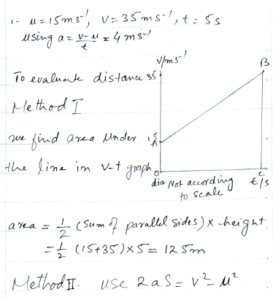 1- u = 15 ms⁻¹, v = 35 ms⁻¹, t = 5s
using a = (v-u)/t = 4 ms⁻¹
v/ms⁻¹
To evaluate distance
35
B
Method I
we find area under
15
A
the line in v-t graph
0
dia Not according to scale
C
t/s
area = 1/2 (Sum of parallel sides) × height
= 1/2 (15+35) × 5 = 125m
Method II. use 2aS = v² - u²